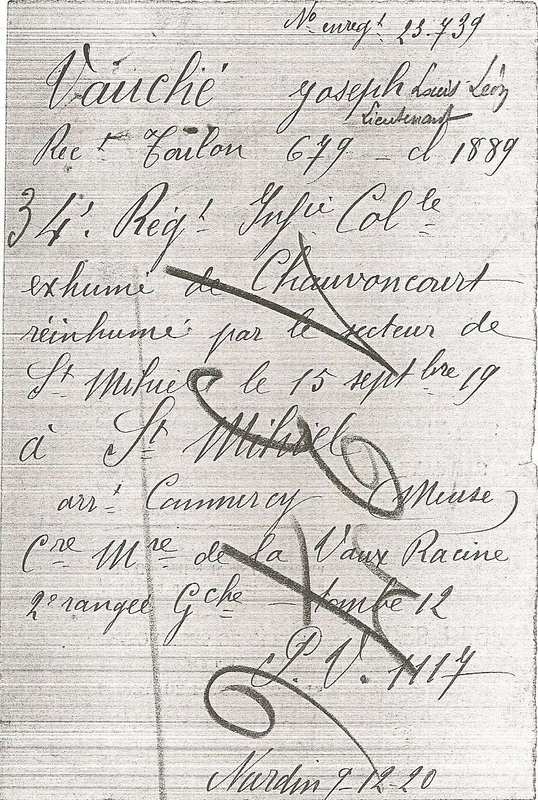 No enregt 23.739
Vauché Joseph Louis Léon
Lieutenant
Rect Toulon 679 - cl 1889
34e. Régt Infie Colle
exhumé de Chauvoncourt
réinhumé par le secteur de
St Mihiel le 15 septbre 19
à St Mihiel
arrt Commercy (Meuse)
Cre Mre de la Vaux Racine
2e rangée Gche - tombe 12
P.V. 1117
Nardin 9-12-20